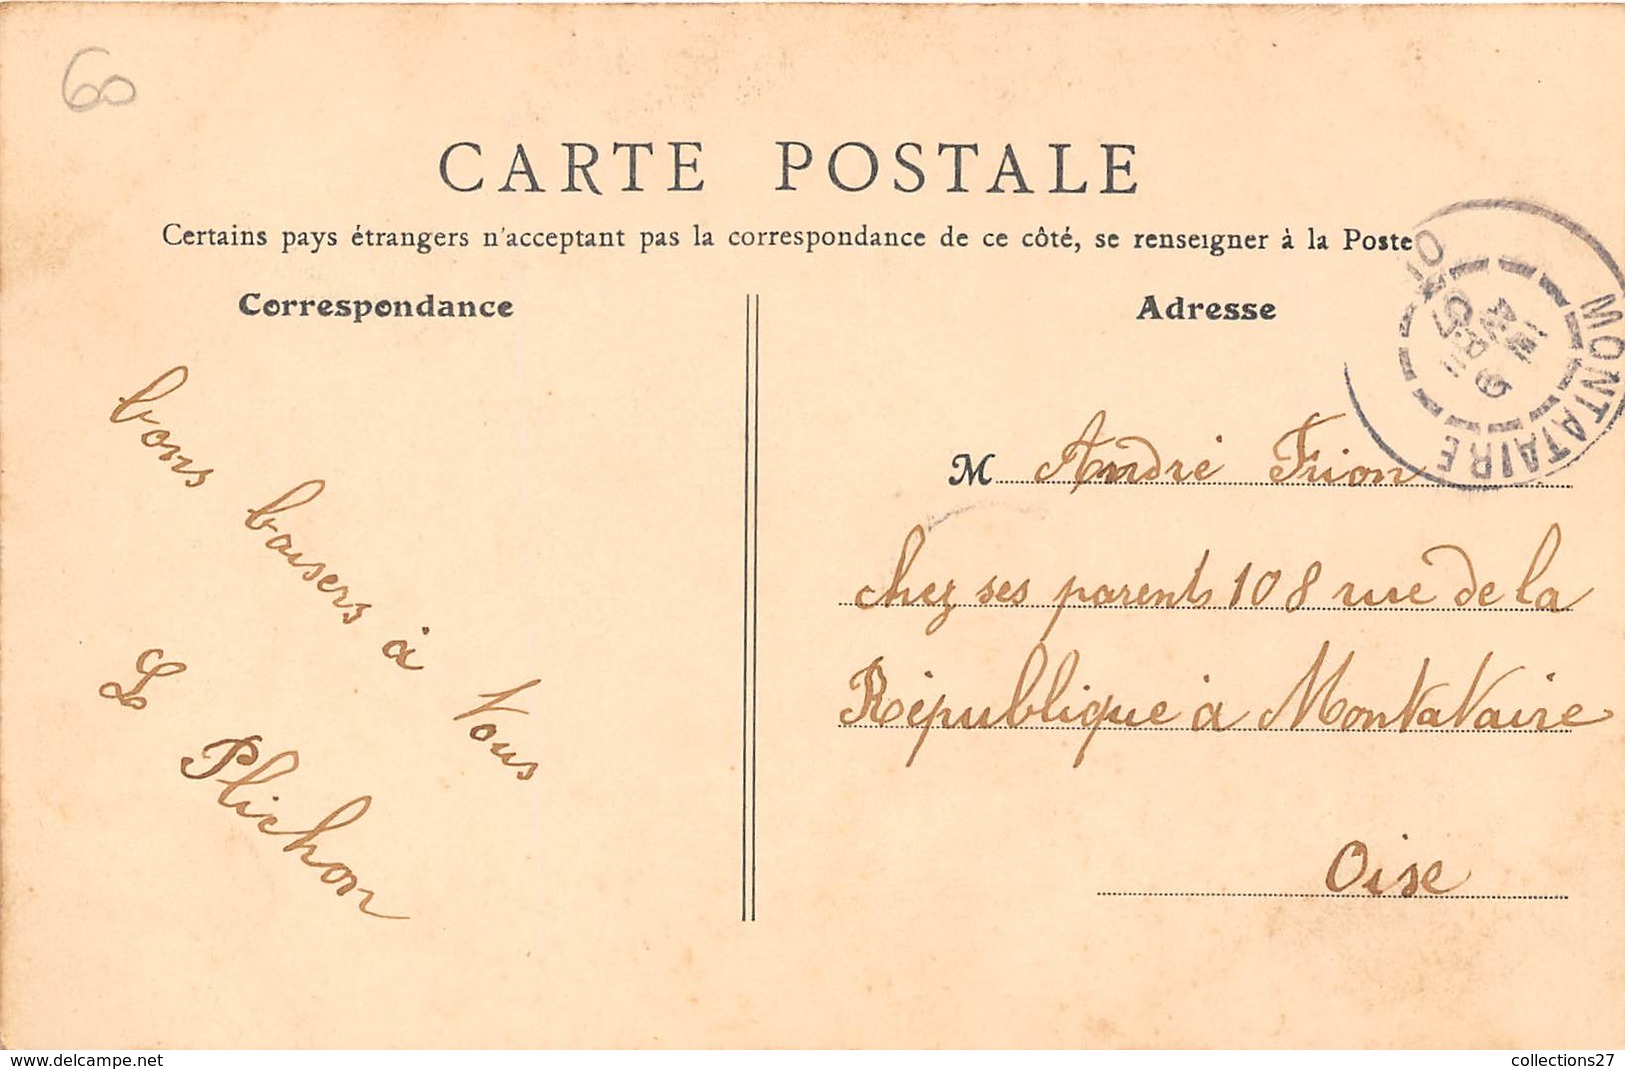 60
CARTE POSTALE
Certains pays étrangers n'acceptant pas la correspondance de ce côté, se renseigner à la Poste
Correspondance
Adresse
MONTATAIRE
bons baisers à Vous
L Plichon
M André Frion
chez ses parents 108 rue de la
République à Montataire
Oise
www.delcampe.net
collections27